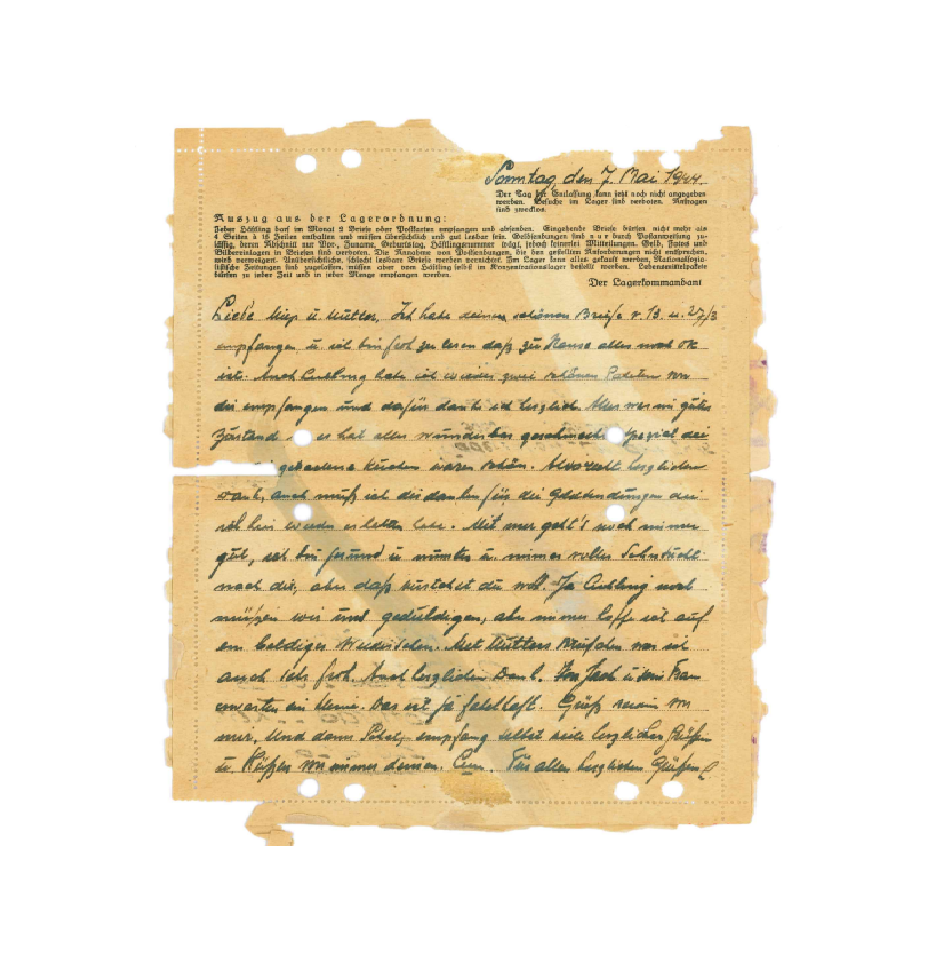 Sonntag, den 7. Mai 1944.
Der Tag der Entlassung kann jetzt noch nicht angegeben
werden. Besuche im Lager sind verboten. Anfragen
sind zwecklos.
Auszug aus der Lagerordnung:
Jeder Häftling darf im Monat 2 Briefe oder Postkarten empfangen und absenden. Eingehende Briefe dürfen nicht mehr als
4 Seiten à 15 Zeilen enthalten und müssen übersichtlich und gut lesbar sein. Geldsendungen sind nur durch Postanweisung zu-
lässig, deren Abschnitt nur Vor-, Zuname, Geburtstag, Häftlingsnummer trägt, jedoch keinerlei Mitteilungen. Geld, Fotos und
Bildereinlagen in Briefen sind verboten. Die Annahme von Postsendungen, die den gestellten Anforderungen nicht entsprechen,
wird verweigert. Unübersichtliche, schlecht lesbare Briefe werden vernichtet. Im Lager kann alles gekauft werden. Nationalsozia-
listische Zeitungen sind zugelassen, müssen aber vom Häftling selbst im Konzentrationslager bestellt werden. Lebensmittelpakete
dürfen zu jeder Zeit und in jeder Menge empfangen werden.
Der Lagerkommandant
Liebe u Mutter, Ich habe deinen schönen Briefe v. 13. u. 27/3
empfangen, u ich bin froh zu lesen daß zu Hause alles noch ok
ist. Auch habe ich wieder zwei schönen Paketen von
die empfangen und dafür danke ich herzlich. Alles war in guten
Zustand es hat alles wunderbar geschmeckt Spezial die
gebackene Kuchen waren schön. herzlichen
auch muß ich die danken für die die
ich hier habe. Mit mir geht's noch immer
gut, ich bin gesund u munter u immer voller Sehnsucht
nach die, aber daß du Ja mal
müssen wir und geduldigen, aber immer hoffe ich auf
ein baldiges Mit Mutters war ich
auch sehr froh. Auch herzlichen Dank. Von u sein Frau
erwarten ein kleine. Das ist ja fabelhaft. Grüß von
mir. Und dann empfang selbst viele herzlichen Grüßen
u. Küssen von immer deinen. Für allen herzlichen Grüssen